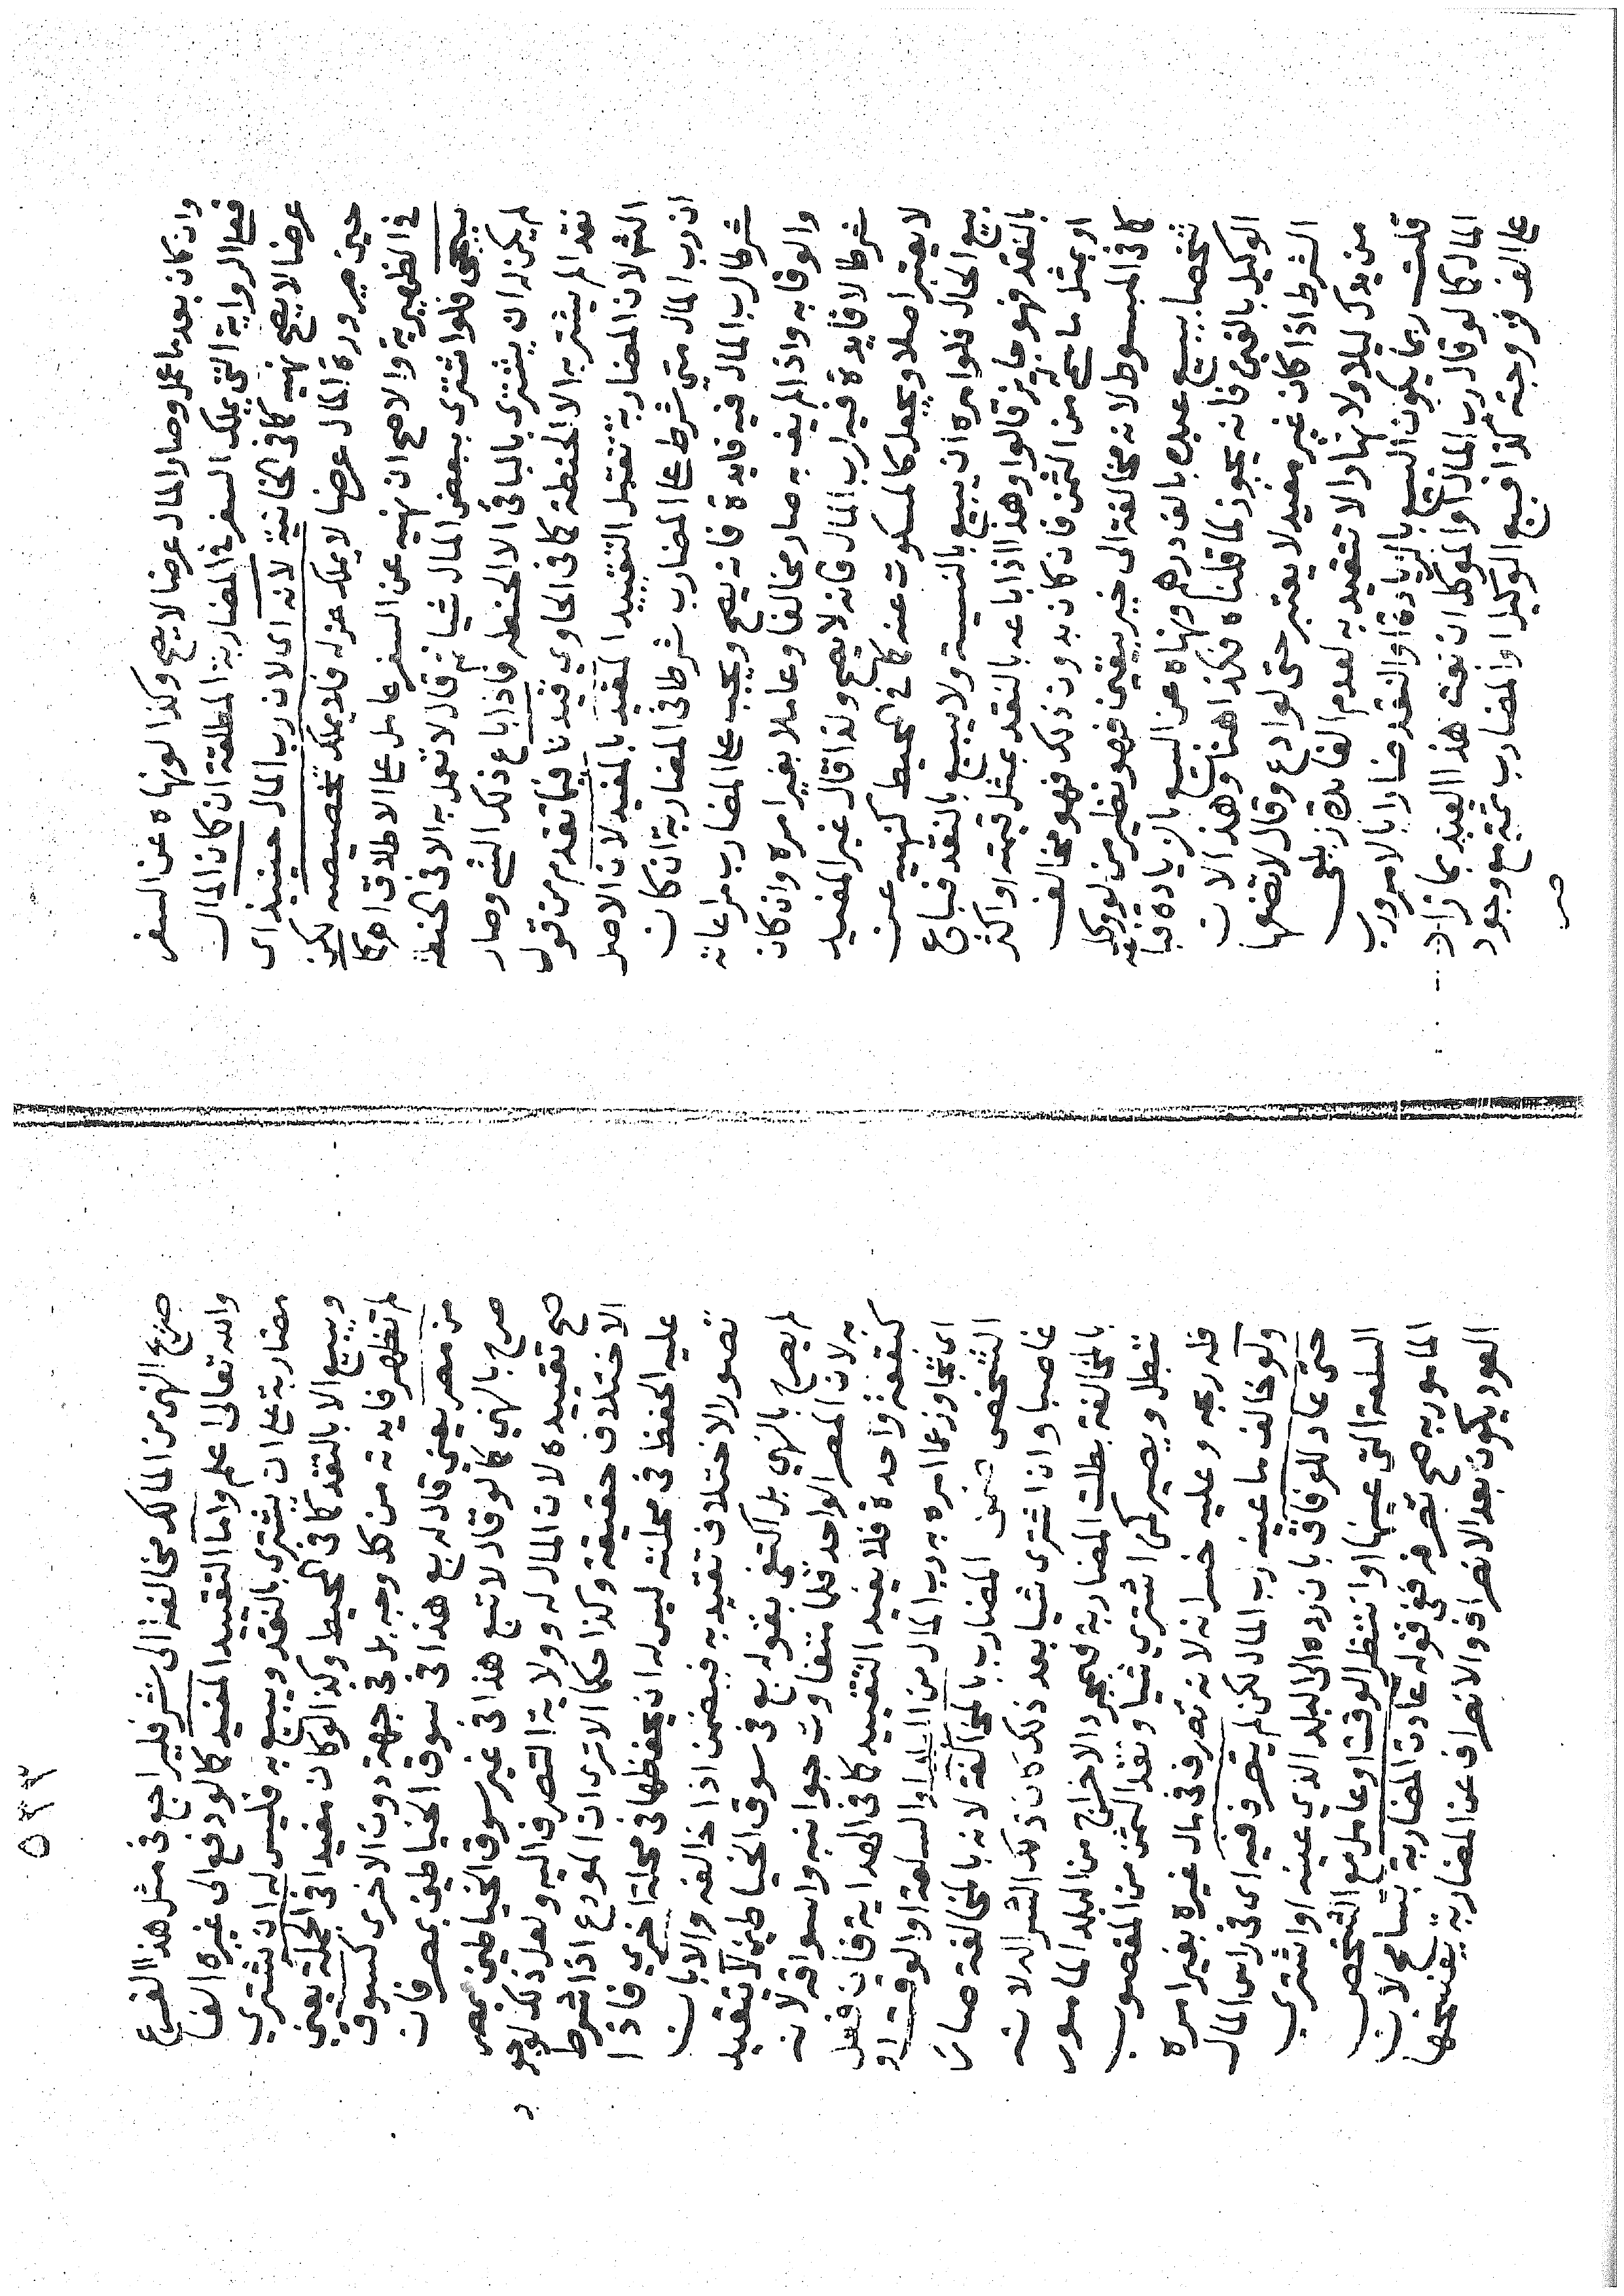 وان كان بعد ما عمل وصار المال عرضا لا يصح وكذا لو نهاه عن السفر
فعلى الرواية التي يملك السفر في المضاربة المطلقة ان كان المال
عرضا لا يصح نهيه كما في الخانية لانه اى لان رب المال حينيذ اى
حين صيرورة المال عرضا لا يملك عزله فلا يملك تخصيصه لكن
في الظهيرية والاصح ان نهيه عن السفر عامل على الاطلاق اه كما
سيجى فلو اشترى ببعض المال شيا ثم قال لا تعمل به الا فى الحنطة
لم يكن له ان يشترى بالباقى الا الحنطة فاذا باع ذلك الشي وصار
نقدا لم يشتر به الا الحنطة كما فى الحاوي قيدنا فيما تقدم من قوله
الشهر لان المضاربة تقبل التقييد المقيد بالمفيد لان الاصل
ان رب المال متى شرط على المضارب شرطا فى المضاربة ان كان
شرطا لرب المال فيه فايدة فانه يصح ويجب على المضارب مراعاته
والوفا به واذا لم يف به صار مخالفا وعاملا بغير امره وان كان
شرطا لا فايدة فيه لرب المال فانه لا يصح ولذا قال غير المفيد
لا يعتبر اصلا ويجعل كالمسكوت عنه كما في المحيط كنهيه عن
بيع الحال فلو امره ان يبيع بالنسيئة ولا يبيع بالنقد فباع
بالنقد فهو جايز قالوا وهذا اذا باعه بالنقد بمثل قيمته او اكثر
او بمثل ما سمى له من الثمن فان كان بدون ذلك فهو مخالف
كما فى المبسوط لانه مخالفة الى خير بيقين فهو نظير من لو وكل
شخصا ببيع عبده بالف درهم ونهاه عن البيع بالزيادة فباعه
الوكيل بالفين فانه يجوز لما قلناه فكذا هنا وهذا لان
الشرط اذا كان غير مفيد لا يعتبر حتى لو اودع وقال لا تضعها
من يدك ليلا ولا نهارا لا تتقيد به لعدم الفايدة زيلعى
قلت ربما يكون البيع بالزيادة او النقد ضارا بالامر ورب
المال كما لو قال رب المال او الموكل ان بعت هذا العبد بما زاد
على الف فزوجته كذا فبيع الوكيل او المضارب ثمة مع وجود
صر
٥٣٣
صريح النهى من المالك مخالفة الى شر فليراجع فى مثل هذا الفرع
والله تعالى اعلم واما التقييد المفيد كما لو دفع الى غيره الفا
مضاربة على ان يشترى بالنقد ويبيع به فليس له ان يشتري
ويبيع الا بالنقد كما فى المحيط وكذا لو كان مفيدا فى الجملة يعني
لم تظهر فايدته من كل وجه بل فى جهة دون الاخرى كسوق
من مصر يعنى قال له بع هذا فى سوق الخياطين بمصر فان
صرح بالنهى كما لو قال لا تبع هذا فى غير سوق الخياطين بمصر
صح تقييده لان المال له وولاية التصرف اليه ولعل ذلك لوجود
الاختلاف حقيقة وكذا حكما الا ترى ان المودع اذا شرط
عليه الحفظ فى محلته ليس له ان يحفظها فى محلة اخرى فاذا
تصور الاختلاف تقيد به فيضمن اذا خالفه والا بان
لم يصرح بالنهي بل اكتفى بقوله بع فى سوق الخياطين لا تتقيد
به لان المصر الواحد قلما تتفاوت جوانبه واسواقه لانه
كبقعة واحدة فلا يفيد التقييد كما فى الهداية فان فعل
اى تجاوز عما امره به رب المال من البلد او السلعة او الوقت او
الشخص ضمن المضارب بالمخالفة لانه بالمخالفة صار
غاصبا وان اشترى شيا بعد ذلك كان ذلك الشراله لانه
بالمخالفة بطلت المضاربة فبمجرد الاخراج من البلد المامور
تبطل ويصير كمن اشتري شيا ونقد الثمن من المغصوب
فله ربحه وعليه خسرانه لانه تصرف فى مال غيره بغير امره
ولو خالف ما عينه رب المال لكن لم يتصرف فيه اى فى راس المال
حتى عاد للوفاق بان رده الى البلد الذي عينه او اشتري
السلعة التي عينها او انتظر الوقت او عامل مع الشخص
المامور به صح تصرفه ففى قوله عادت المضاربة تسامح لان
العود يكون بعد الانصراف والانصراف عن المضاربة يفسخها